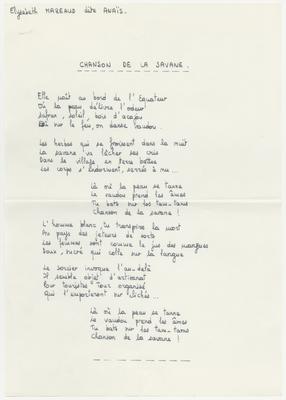 Elysabeth MAREAUD dite ANAÏS.
CHANSON DE LA SAVANE.
Elle naît au bord de l'Equateur
Où la peau délivre l'odeur
Safran, soleil, bois d'acajou
Où sur le feu, on danse vaudou.
Les herbes qui se froissent dans la nuit
La savane va lâcher ses cris
Dans le village en terre battue
Les corps s'endorment, serrés à nu...
Là où la peau se tanne
Le vaudou prend les âmes
Tu bats sur les tam-tams
Chanson de la savane !
L'homme blanc, tu transpires la mort
Au pays des jeteurs de sorts
Les femmes sont comme le jus des mangues
Doux, sucré qui colle sur la langue
Le sorcier invoque l'au-delà
Il semble objet d'artisanat
Pour touristes Tour organisé
Qui l'emporteront sur clichés...
Là où la peau se tanne
Le vaudou prend les âmes
Tu bats sur les tam-tams
Chanson de la savane !